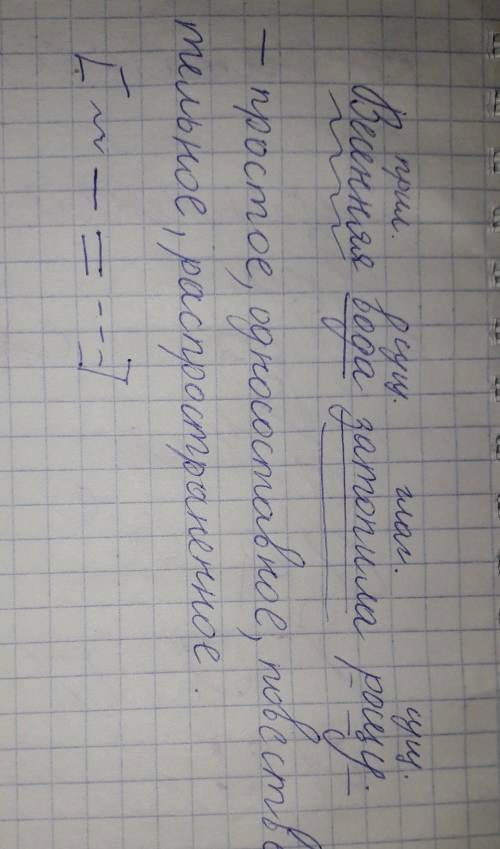 прил. сущ. глаг. сущ.
Весенняя вода затопила рощу.
– простое, односоставное, повество
тельное, распространенное.
[~ – = ---]